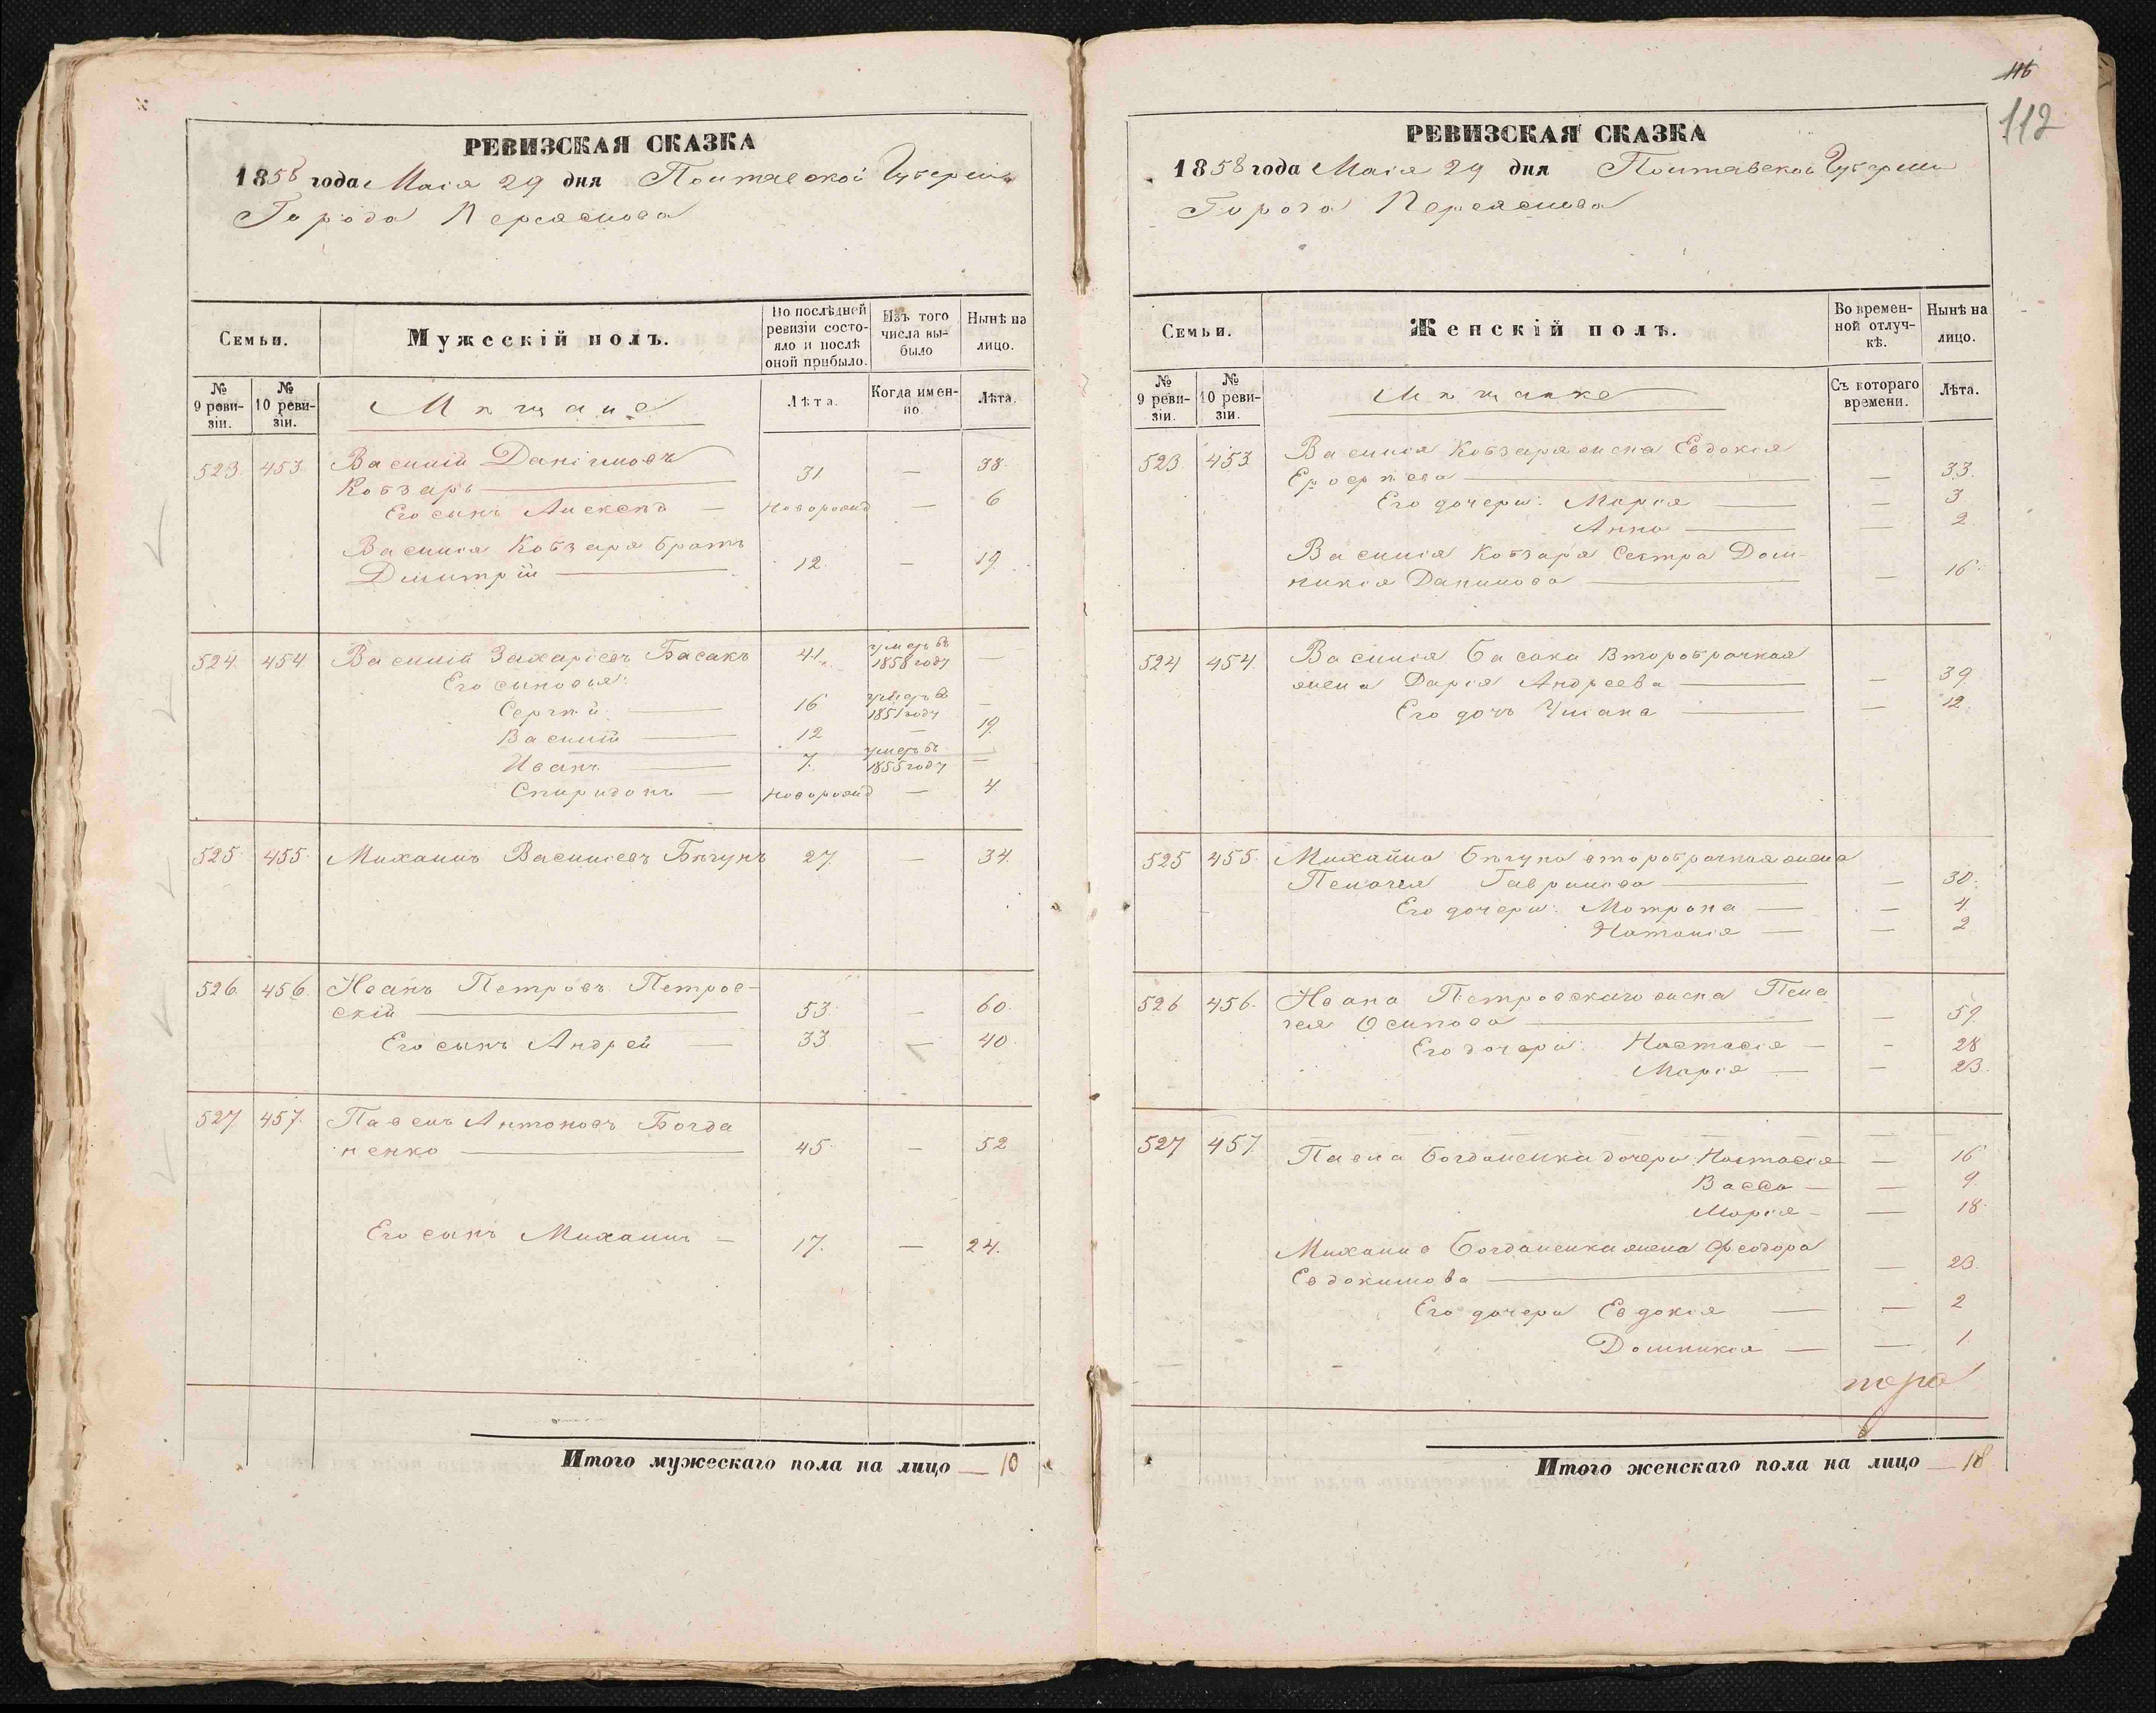 РЕВИЗСКАЯ СКАЗКА
1858 года Маія 29 дня Полтавской Губерніи
Города Переяслова
Семьи.
Мужескій полъ.
По послѣдней ревизіи состояло и послѣ оной прибыло.
Изъ того числа выбыло
Нынѣ на лицо.
№ 9 ревизіи.
№ 10 ревизіи.
Мѣщане
Лѣта.
Когда именно.
Лѣта.
523. 453. Василій Даніиловъ
Кобзарь — 31 — 38.
Его сынъ Алексѣй — новорожд — 6
Василія Кобзаря братъ
Дмитрій — 12 — 19.
524. 454 Василій Захаріевъ Басакъ 41. умеръ въ 1858 году —
Его сыновья:
Сергѣй — 16 умеръ въ 1851 году —
Василій — 12 — 19.
Иванъ — 7. умеръ въ 1855 году —
Спиридонъ — новорожд — 4
525. 455. Михаилъ Васильевъ Бѣгунъ 27. — 34.
526. 456. Иванъ Петровъ Петров-
скій — 53. — 60.
Его сынъ Андрей — 33 — 40.
527 457. Павелъ Антоновъ Богда
ненко — 45. — 52
Его сынъ Михаилъ — 17. — 24.
Итого мужескаго пола на лицо — 10
116
112
РЕВИЗСКАЯ СКАЗКА
1858 года Маія 29 дня Полтавской Губерніи
Города Переяслова
Семьи.
Женскій полъ.
Во временной отлучкѣ.
Нынѣ на лицо.
№ 9 ревизіи.
№ 10 ревизіи.
Мѣщанке
Съ котораго времени.
Лѣта.
523. 453 Василія Кобзаря жена Евдокія
Ерофѣева — — 33.
Его дочери: Марія — — 3
Анна — — 2
Василія Кобзаря Сестра Дом-
никія Данилова — — 16.
524 454. Василія Басака второбрачная
жена Дарія Андреева — — 39
Его дочь Уліана — — 12.
525 455. Михайла Бѣгуна второбрачная жена
Пелагея Гаврилова — — 30.
Его дочери: Мотрона — — 4.
Наталія — — 2
526 456. Ивана Петровскаго жена Пела
гея Осипова — — 59
Его дочери: Настасія — — 28
Марія — — 23.
527 457 Павла Богданенка дочери Настасія — 16
Васса — — 9.
Марія — — 18.
Михаила Богданенка жена Феодора
Евдокимова — — 23.
Его дочери Евдокія — — 2
Домникія — — 1.
Итого женскаго пола на лицо — 18